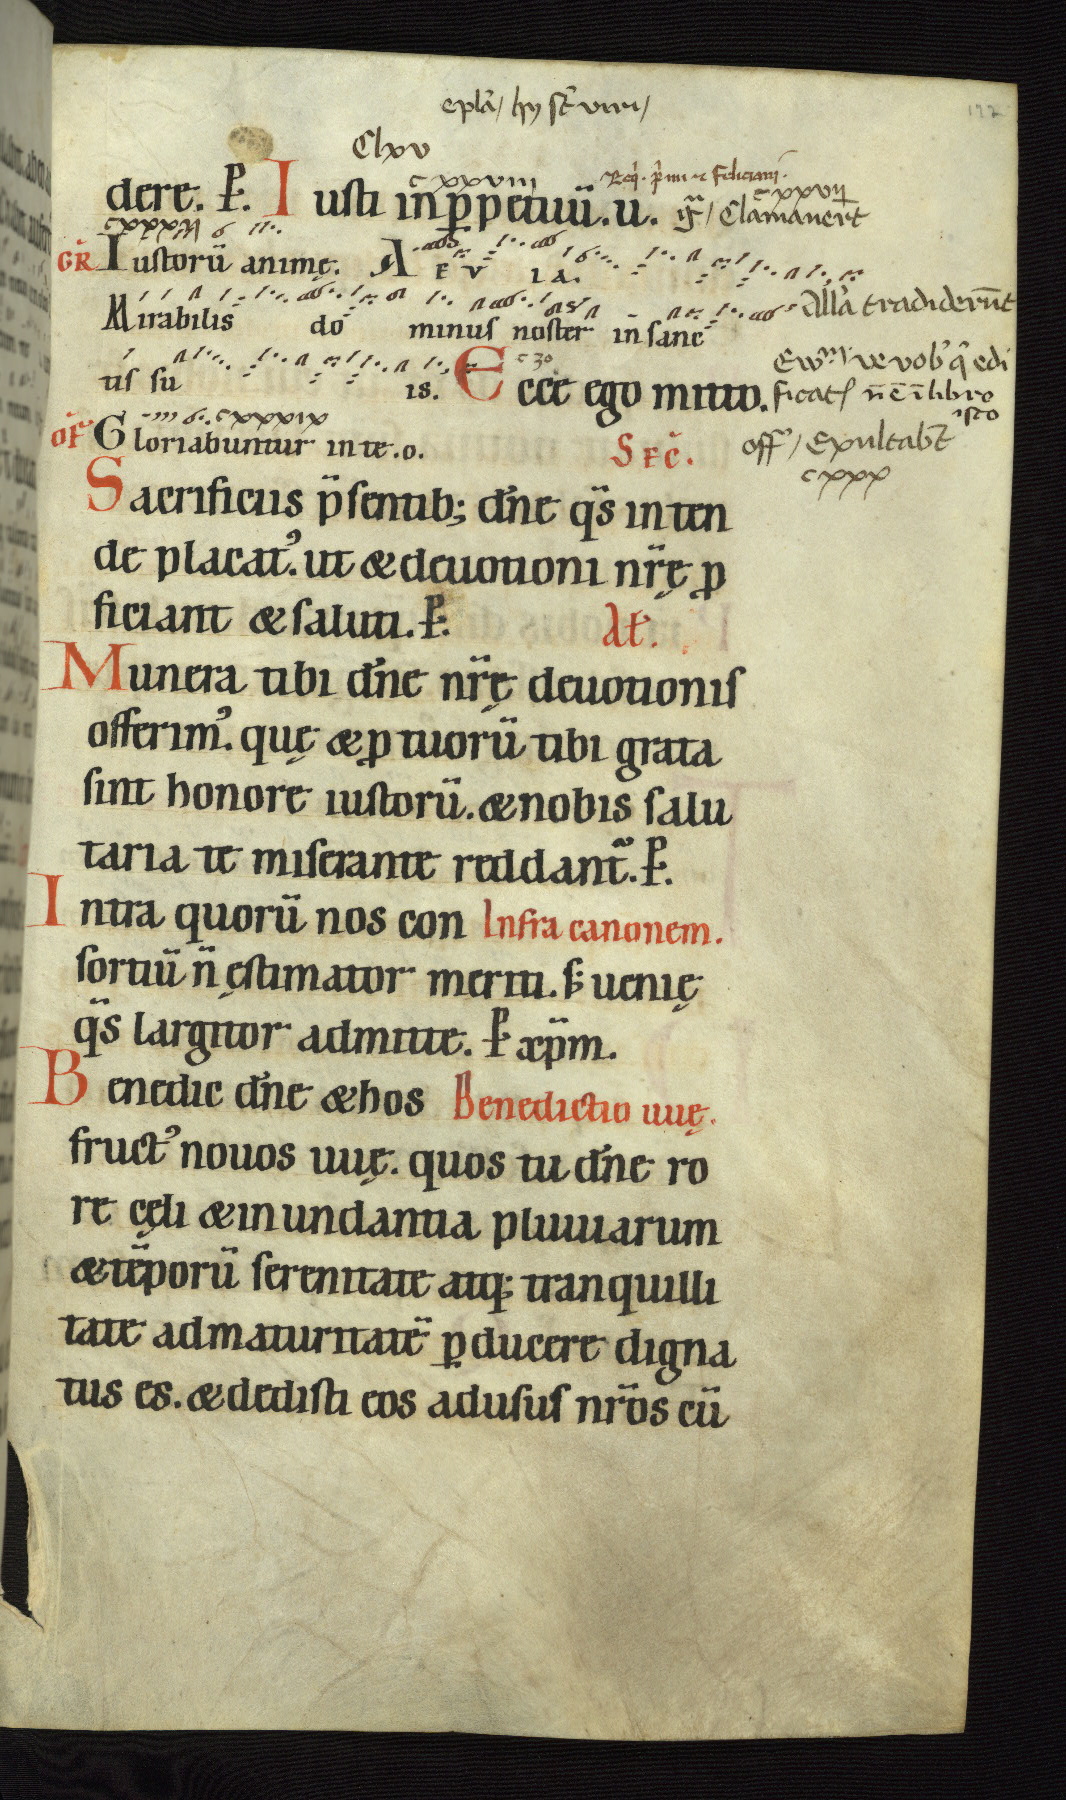 epla / hy st viri /
Clxv
cxxviii
cxxvii
dere. P. Iusti inppetuū. u. gr / Clamavert
cxxxxi
GR Iustorū animę. AEVIA.
Mirabilis do minus noster in sanc
Alla tradiderūt
tis su is. Ecce ego mitto.
c 30
Ew ve vob q edi
ficat n ē ī libro
isto
cxxxxix
OF Gloriabuntur in te. o. SEC.
off / Exultabt
cxxx
Sacrificiis p̄sentib; dn̄e qs̄ inten
de placat'. ut & deuotioni nr̄ę p
ficiant & saluti. P. AL.
Munera tibi dn̄e nr̄ę deuotionis
offerim'. quę & p tuorū tibi grata
sint honore iustorū. & nobis salu
taria te miserante reddant. P.
Intra quorū nos con Infra canonem.
sortiū n̄ ęstimator meriti. s; uenię
qs̄ largitor admitte. P xp̄m.
Benedic dn̄e & hos Benedictio uuę.
fruct' nouos uuę. quos tu dn̄e ro
re cęli & inundantia pluuiarum
& tēporū serenitate atq; tranquilli
tate admaturitatē pducere digna
tus es. & dedisti eos adusus nr̄os cū